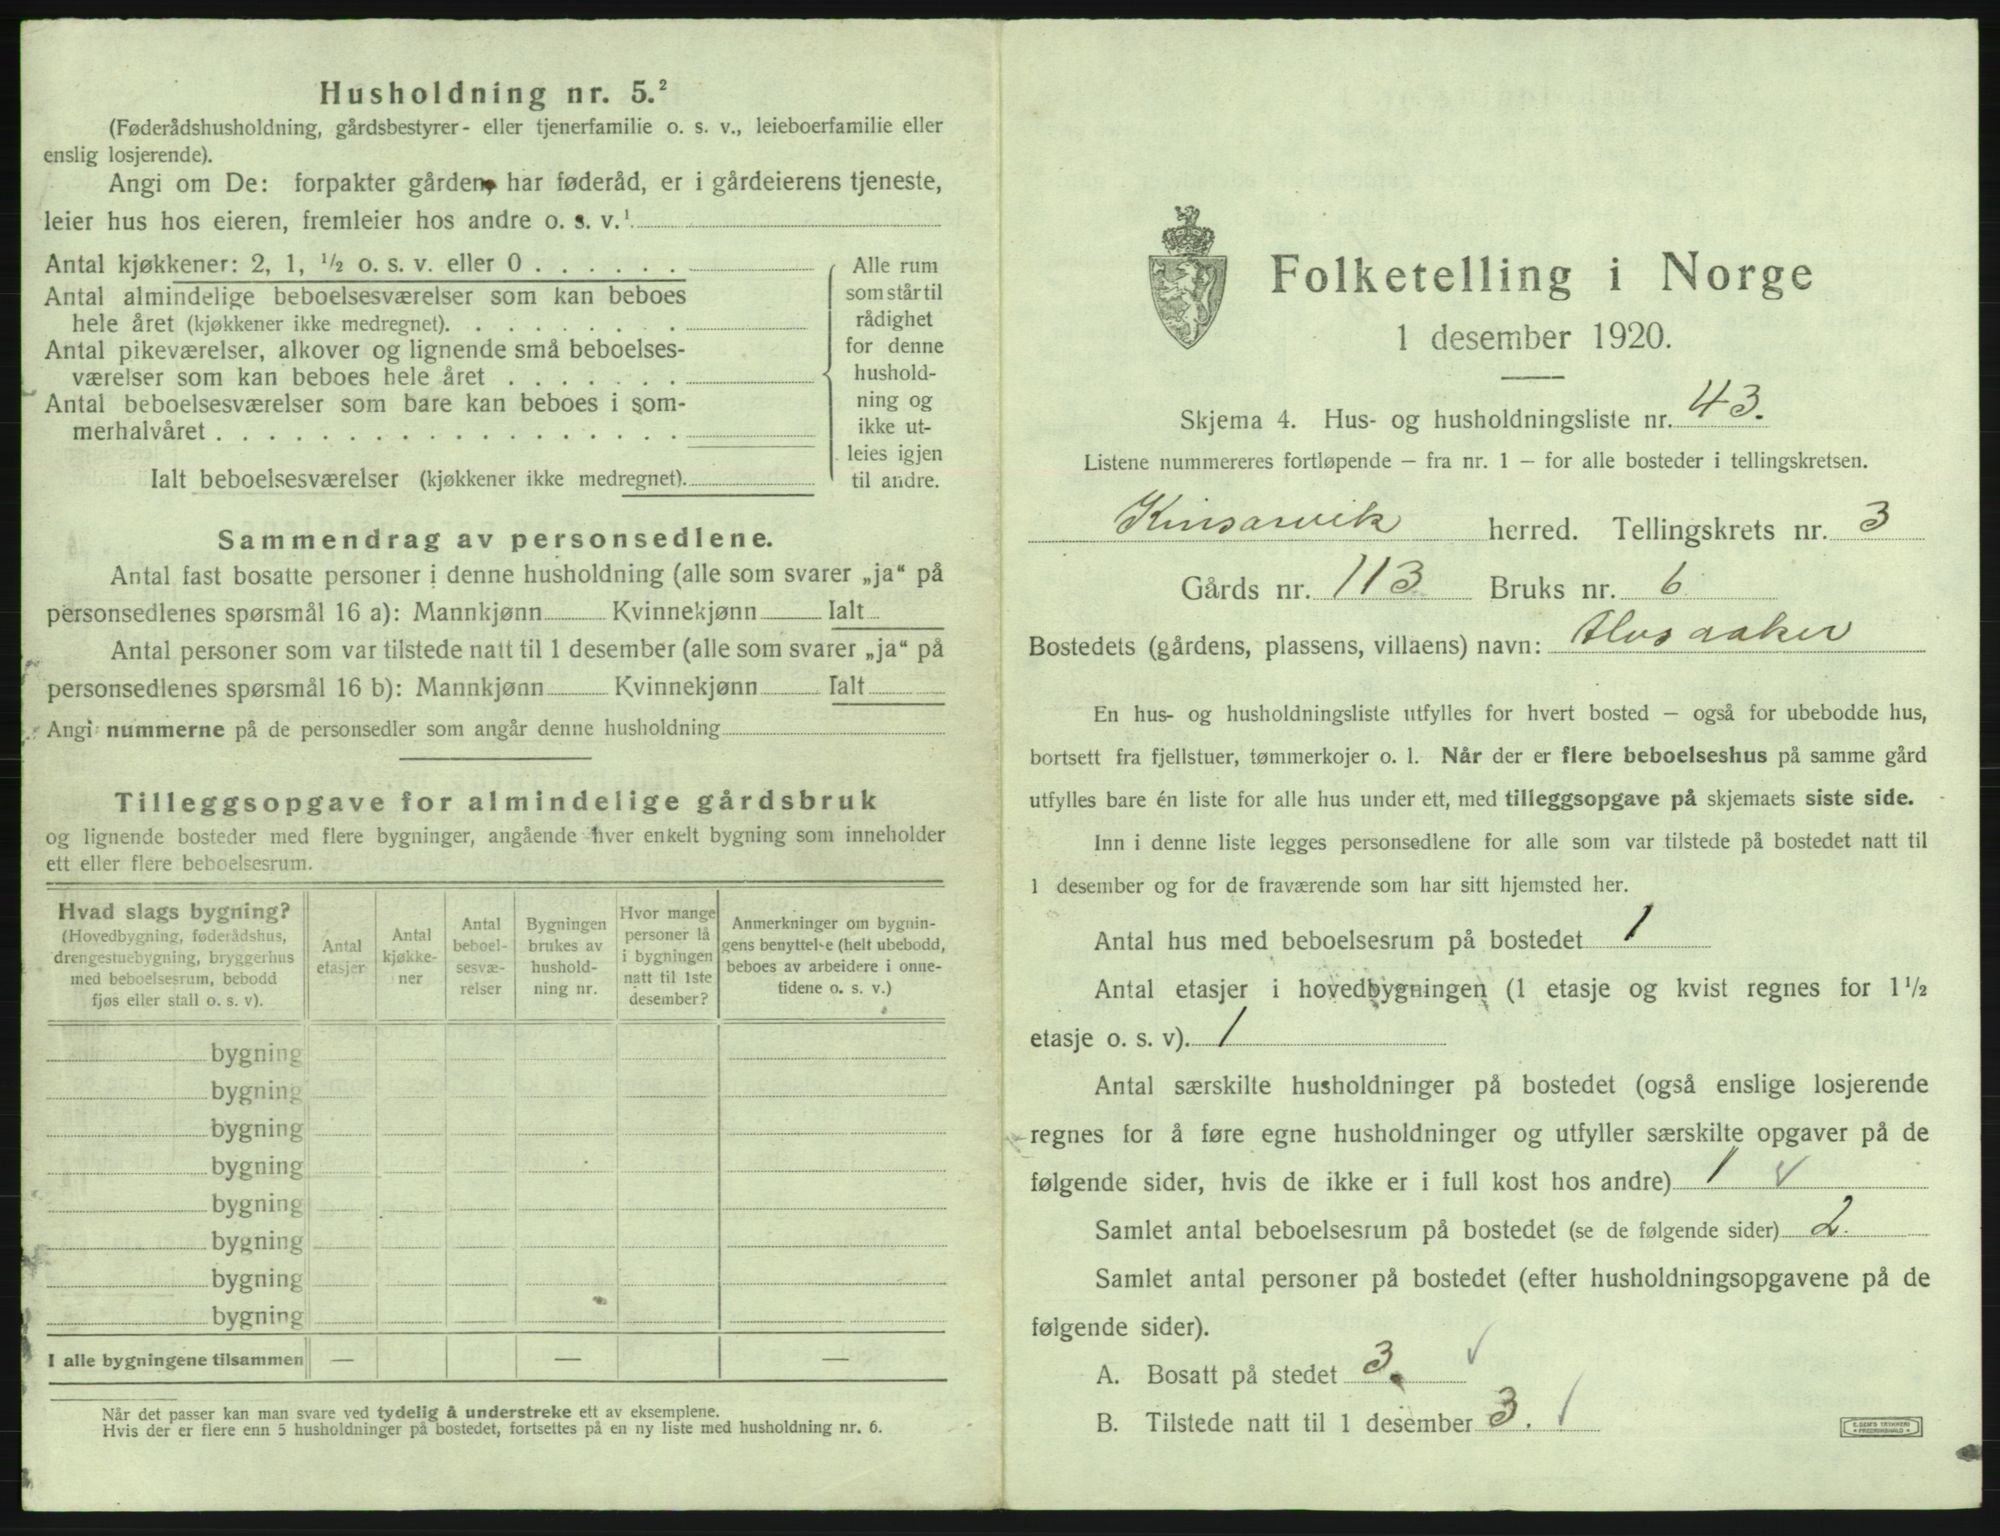 Husholdning nr. 5.²
(Føderådshusholdning, gårdsbestyrer- eller tjenerfamilie o. s. v., leieboerfamilie eller
enslig losjerende).
Angi om De: forpakter gården, har føderåd, er i gårdeierens tjeneste,
leier hus hos eieren, fremleier hos andre o. s. v.¹
Antal kjøkkener: 2, 1, ½ o. s. v. eller 0 . . . . . .
Antal almindelige beboelsesværelser som kan beboes
hele året (kjøkkener ikke medregnet). . . . . . . . .
Antal pikeværelser, alkover og lignende små beboelses-
værelser som kan beboes hele året . . . . . . .
Antal beboelsesværelser som bare kan beboes i som-
merhalvåret . . . . . . . . . . . . . . . . . .
Ialt beboelsesværelser (kjøkkener ikke medregnet).
Alle rum
som står til
rådighet
for denne
hushold-
ning og
ikke ut-
leies igjen
til andre.
Sammendrag av personsedlene.
Antal fast bosatte personer i denne husholdning (alle som svarer „ja“ på
personsedlenes spørsmål 16 a): Mannkjønn Kvinnekjønn Ialt
Antal personer som var tilstede natt til 1 desember (alle som svarer „ja“ på
personsedlenes spørsmål 16 b): Mannkjønn Kvinnekjønn Ialt
Angi nummerne på de personsedler som angår denne husholdning
Tilleggsopgave for almindelige gårdsbruk
og lignende bosteder med flere bygninger, angående hver enkelt bygning som inneholder
ett eller flere beboelsesrum.
Hvad slags bygning?
(Hovedbygning, føderådshus,
drengestuebygning, bryggerhus
med beboelsesrum, bebodd
fjøs eller stall o. s. v).
Antal
etasjer
Antal
kjøkke-
ner
Antal
beboel-
sesvæ-
relser
Bygningen
brukes av
hushold-
ning nr.
Hvor mange
personer lå
i bygningen
natt til 1ste
desember?
Anmerkninger om bygnin-
gens benyttelse (helt ubebodd,
beboes av arbeidere i onne-
tidene o. s. v.)
bygning
bygning
bygning
bygning
bygning
bygning
bygning
bygning
I alle bygningene tilsammen — — —
Når det passer kan man svare ved tydelig å understreke ett av eksemplene.
Hvis der er flere enn 5 husholdninger på bostedet, fortsettes på en ny liste med husholdning nr. 6.
Folketelling i Norge
1 desember 1920.
Skjema 4. Hus- og husholdningsliste nr. 43.
Listene nummereres fortløpende — fra nr. 1 — for alle bosteder i tellingskretsen.
Kinsarvik herred. Tellingskrets nr. 3
Gårds nr. 113 Bruks nr. 6
Bostedets (gårdens, plassens, villaens) navn: Alvsaaker
En hus- og husholdningsliste utfylles for hvert bosted — også for ubebodde hus,
bortsett fra fjellstuer, tømmerkojer o. l. Når der er flere beboelseshus på samme gård
utfylles bare én liste for alle hus under ett, med tilleggsopgave på skjemaets siste side.
Inn i denne liste legges personsedlene for alle som var tilstede på bostedet natt til
1 desember og for de fraværende som har sitt hjemsted her.
Antal hus med beboelsesrum på bostedet 1
Antal etasjer i hovedbygningen (1 etasje og kvist regnes for 1½
etasje o. s. v). 1
Antal særskilte husholdninger på bostedet (også enslige losjerende
regnes for å føre egne husholdninger og utfyller særskilte opgaver på de
følgende sider, hvis de ikke er i full kost hos andre) 1 ✓
Samlet antal beboelsesrum på bostedet (se de følgende sider) 2.
Samlet antal personer på bostedet (efter husholdningsopgavene på de
følgende sider).
A. Bosatt på stedet 3. ✓
B. Tilstede natt til 1 desember 3. /